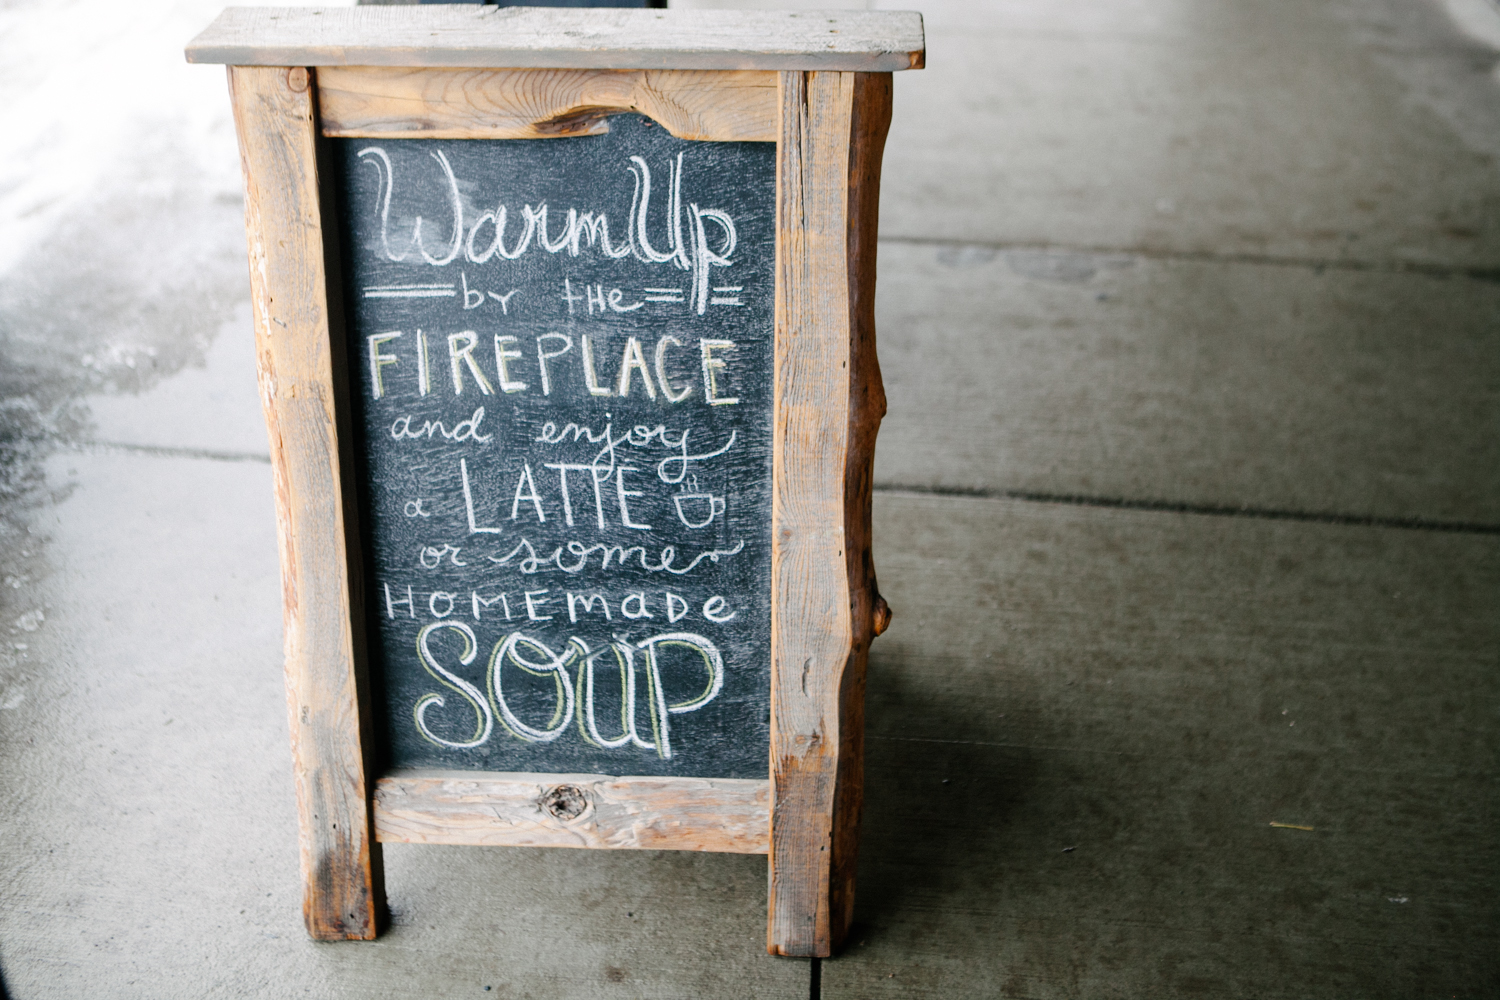 Warm Up
by the
FIREPLACE
and enjoy
a LATTE
or some
HOMEmaDe
SOUP